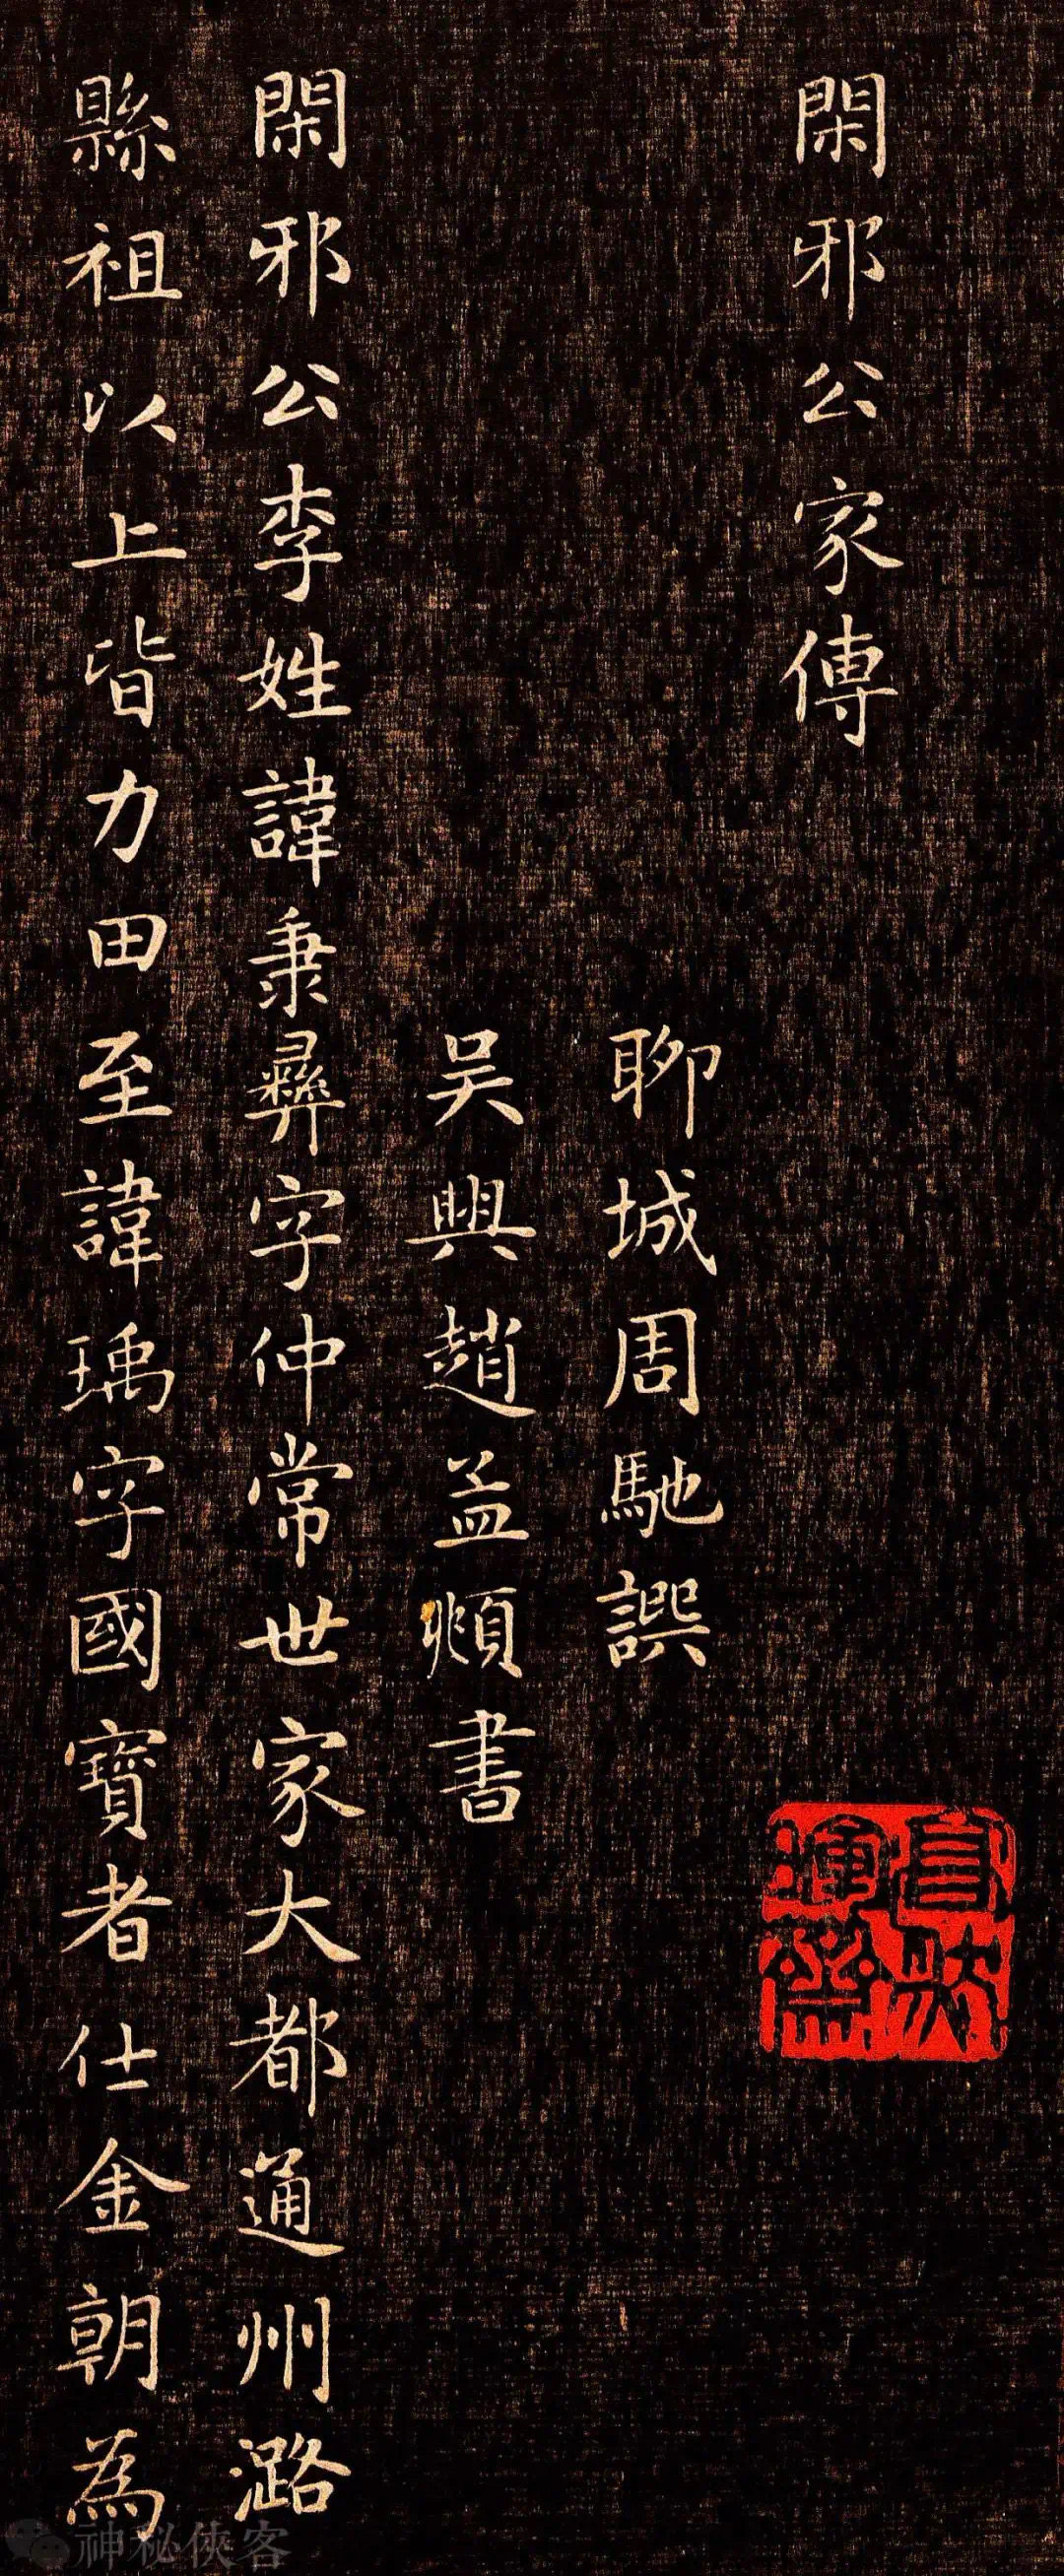 閑邪公家傳
聊城周馳譔
吴興趙孟頫書
閑邪公李姓諱秉彝字仲常世家大都通州潞
縣祖以上皆力田至諱瑀字國寶者仕金朝為
神秘俠客